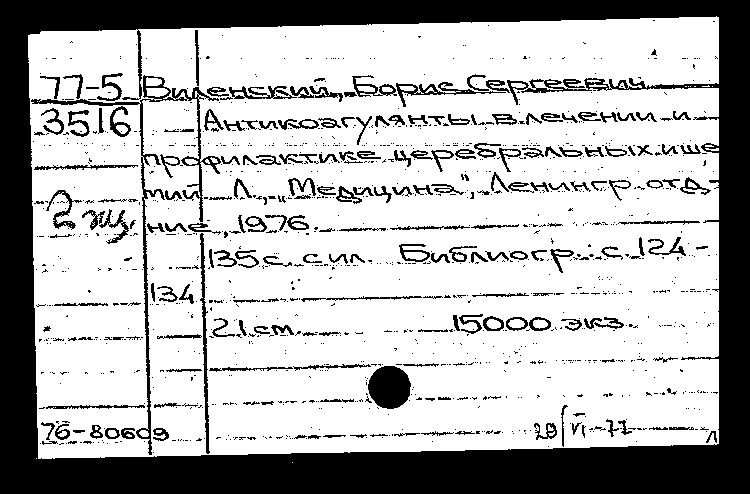 77-5 Виленский, Борис Сергеевич
3516 Антикоагулянты в лечении и
профилактике церебральных ише
мий Л., „Медицина", Ленингр. отд-
2 экз. ние, 1976.
135 с. с ил. Библиогр.: с. 124-
134
21 см. 15000 экз.
76-80609 29/VI-77 Л